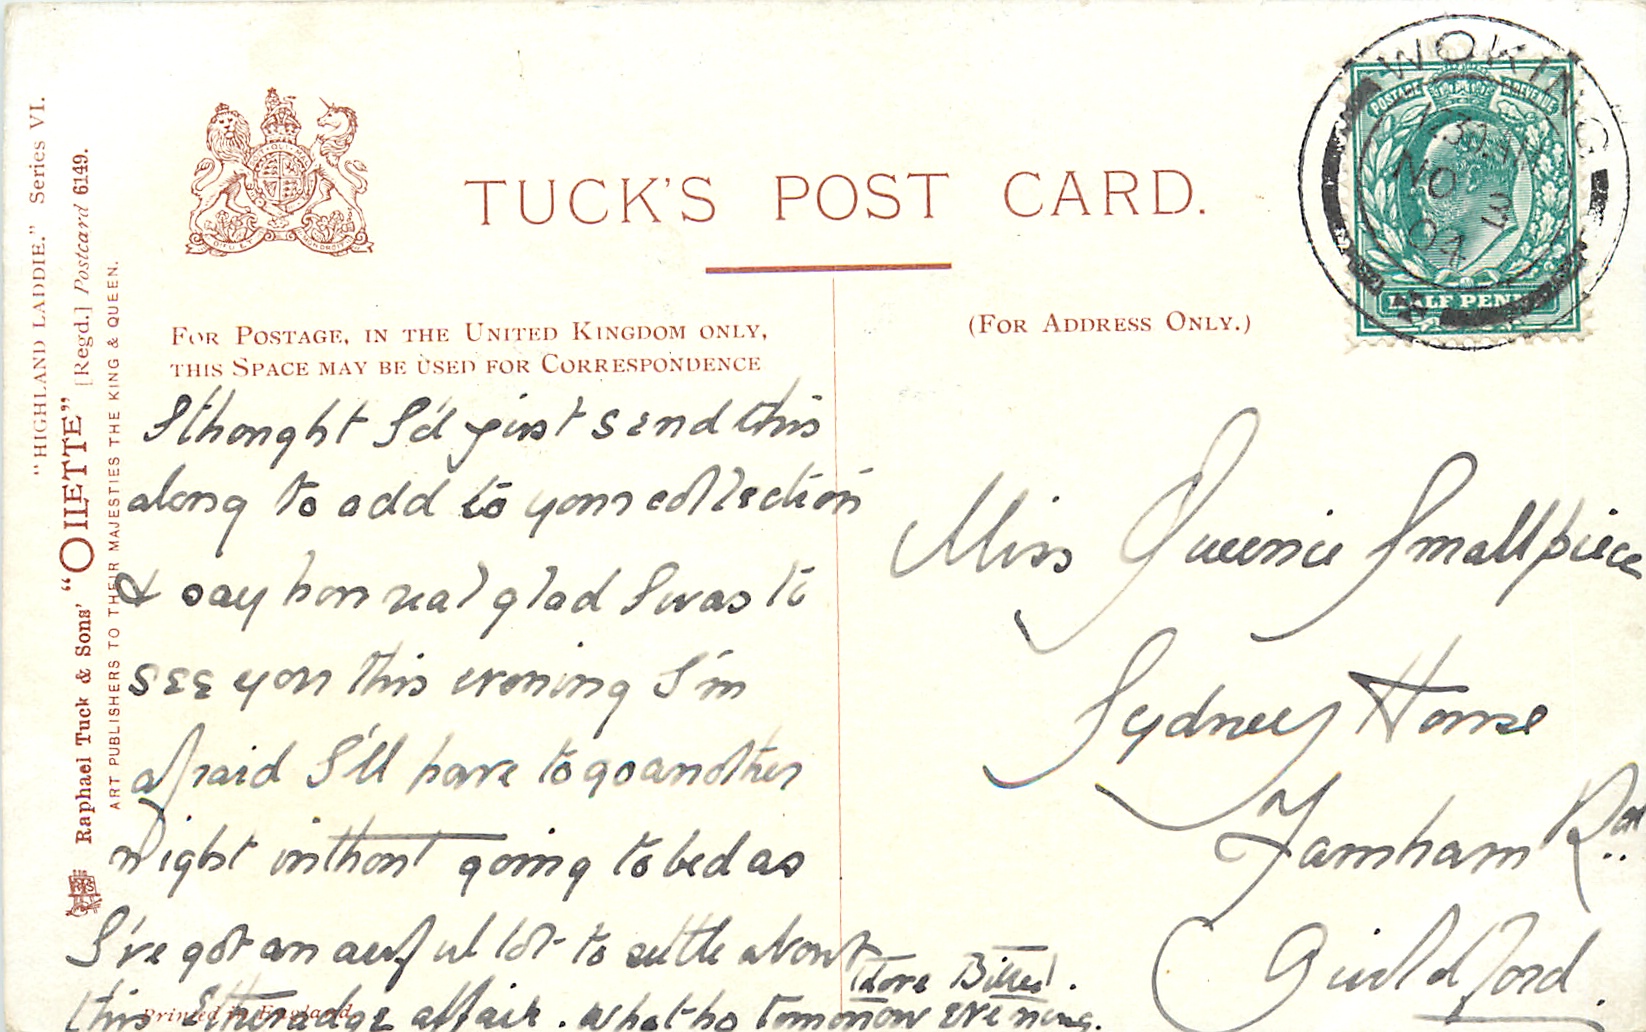 "HIGHLAND LADDIE." Series VI.
Raphael Tuck & Sons' "OILETTE" [Regd.] Postcard 6149.
ART PUBLISHERS TO THEIR MAJESTIES THE KING & QUEEN.
TUCK'S POST CARD.
FOR POSTAGE, IN THE UNITED KINGDOM ONLY,
THIS SPACE MAY BE USED FOR CORRESPONDENCE
(FOR ADDRESS ONLY.)
WOKING
NO 3
04
POSTAGE & REVENUE
HALF PENNY
I thought I'd just send this
along to add to your collection
& say how real glad I was to
see you this evening I'm
afraid I'll have to go another
night without going to bed as
I've got an awful lot to settle about
this Etheradge affair. what ho tomorrow evening.
Tdore
Printed in England
Miss Queenie Smallpiece
Sydney House
Farnham Rd
Guildford.